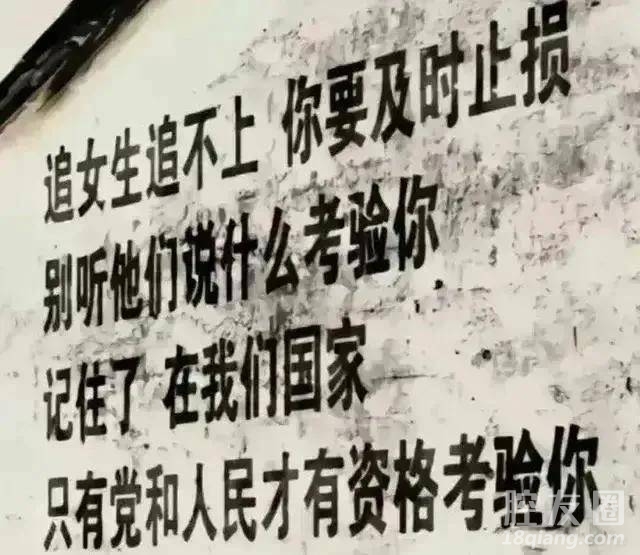 追女生追不上 你要及时止损
别听他们说什么考验你
记住了 在我们国家
只有党和人民才有资格考验你
腔友圈
18qiang.com